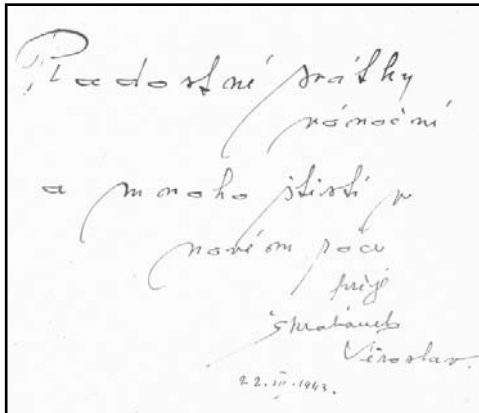 Radostné svátky
vánoční
a mnoho štěstí v
novém roce
přeje
Škrabánek
Věroslav.
22. 1943.